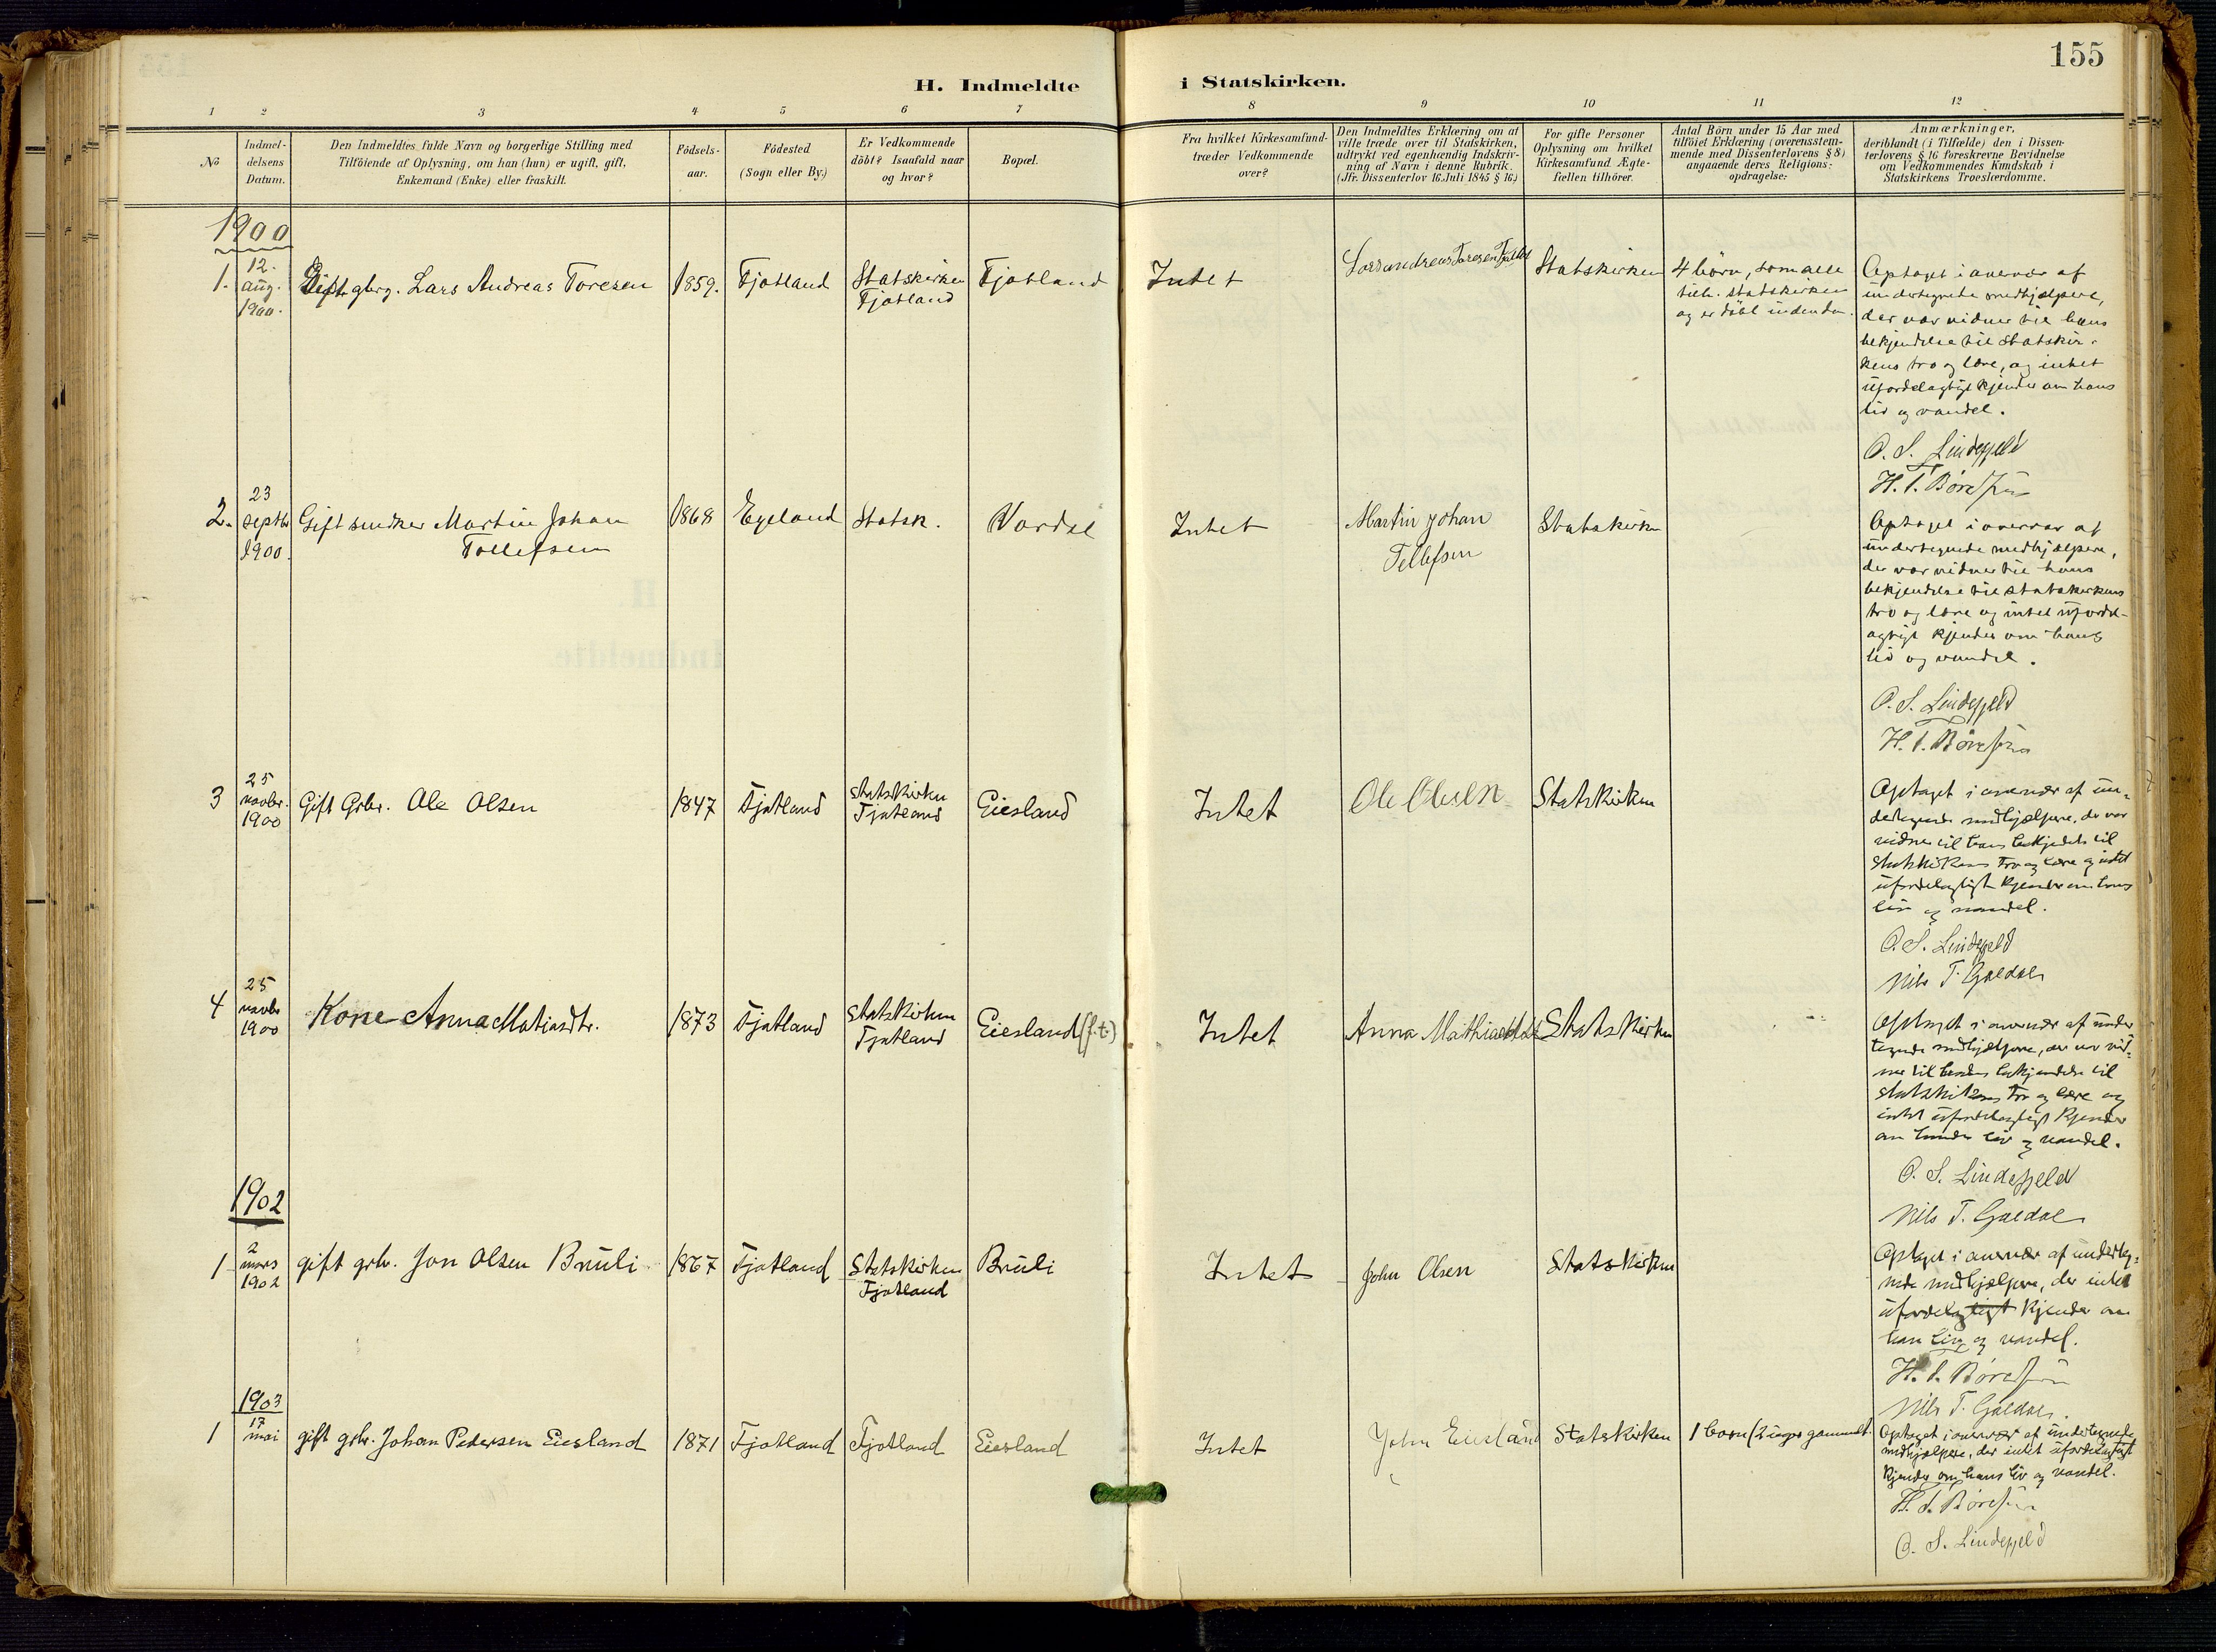 155
H. Indmeldte i Statskirken.
1 2 3 4 5 6 7 8 9 10 11 12
No
Indmel-
delsens
Datum.
Den Indmeldtes fulde Navn og borgerlige Stilling med
Tilföiende af Oplysning, om han (hun) er ugift, gift,
Enkemand (Enke) eller fraskilt.
Födsels-
aar.
Födested
(Sogn eller By.)
Er Vedkommende
döbt? Isaafald naar
og hvor?
Bopæl.
Fra hvilket Kirkesamfund-
træder Vedkommende
over?
Den Indmeldtes Erklæring om at
ville træde over til Statskirken,
udtrykt ved egenhændig Indskriv-
ning af Navn i denne Rubrik.
(Jfr. Dissenterlov 16. Juli 1845 § 16.)
For gifte Personer
Oplysning om hvilket
Kirkesamfund Ægte-
fællen tilhörer.
Antal Börn under 15 Aar med
tilföiet Erklæring (overensstem-
mende med Dissenterlovens § 8)
angaaende deres Religions-
opdragelse:
Anmærkninger,
deriblandt (i Tilfælde) den i Dissen-
terlovens § 16 foreskrevne Bevidnelse
om Vedkommendes Kundskab i
Statskirkens Troeslærdomme.
1900
1.
12.
aug.
1900.
Gift gbrg. Lars Andreas Toresen
1859.
Fjotland
Statskirken
Fjotland
Fjotland
Intet
Lars Andreas Toresen
Statskirken
4 börn, som alle
tilh. statskirken
og er döbt indenden.
Optaget i overvær af
undertegnede medhjælpere,
der var vidner til hans
bekjendelse til Statskir-
kens tro og lære, og intet
ufordelagtigt kjender om hans
liv og vandel.
O. S. Lindefjeld
H. T. Böresen
2.
23
septbr
1900.
Gift snedker Martin Johan
Tollefsen
1868
Egeland
Statsk.
Vordal
Intet
Martin Johan
Tellefsen
Statskirken
Optaget i overvær af
undertegnede medhjælpere,
der var vidner til hans
bekjendelse til statskirkens
tro og lære og intet ufordel-
agtigt kjender om hans
liv og vandel.
O. S. Lindefjeld
H. T. Böresen
3
25
novbr.
1900
Gift Grbr. Ole Olsen
1847
Fjotland
Statskirken
Fjotland
Eiesland
Intet
Ole Olsen
Statskirken
Optaget i overvær af un-
dertegnede medhjælpere, der var
vidner til hans bekjendelse til
statskirkens tro og lære og intet
ufordelagtigt kjender om hans
liv og vandel.
O. S. Lindefjeld
Nils T. Galdal
4
25
novbr
1900
Kone Anna Matiasdtr.
1873
Fjotland
Statskirken
Fjotland
Eiesland (f.t.)
Intet
Anna Mathiasdtr
Statskirken
Optaget i overvær af under
tegnede medhjælpere, der var vid-
ner til hendes bekjendelse til
statskirkens tro og lære og
intet ufordelagtigt kjender
om hendes liv og vandel.
O. S. Lindefjeld
Nils T. Galdal
1902
1
2
mars
1902
gift grbr. Jon Olsen Bruli
1867
Fjotland
Statskirken
Fjotland
Bruli
Intet
John Olsen
Statskirken
Optaget i overvær af underteg-
nede medhjælpere, der intet
ufordelagtigt kjender om
hans liv og vandel.
H. T. Böresen
Nils T. Galdal.
1903
1
17
mai
gift grbr. Johan Pedersen Eiesland
1871
Fjotland
Fjotland
Eiesland
Intet
John Eiesland
Statskirken
1 barn
Optaget i overvær af undertegnede
medhjælpere, der intet ufordelagtigt
kjender om hans liv og vandel.
H. T. Böresen
O. S. Lindefjeld